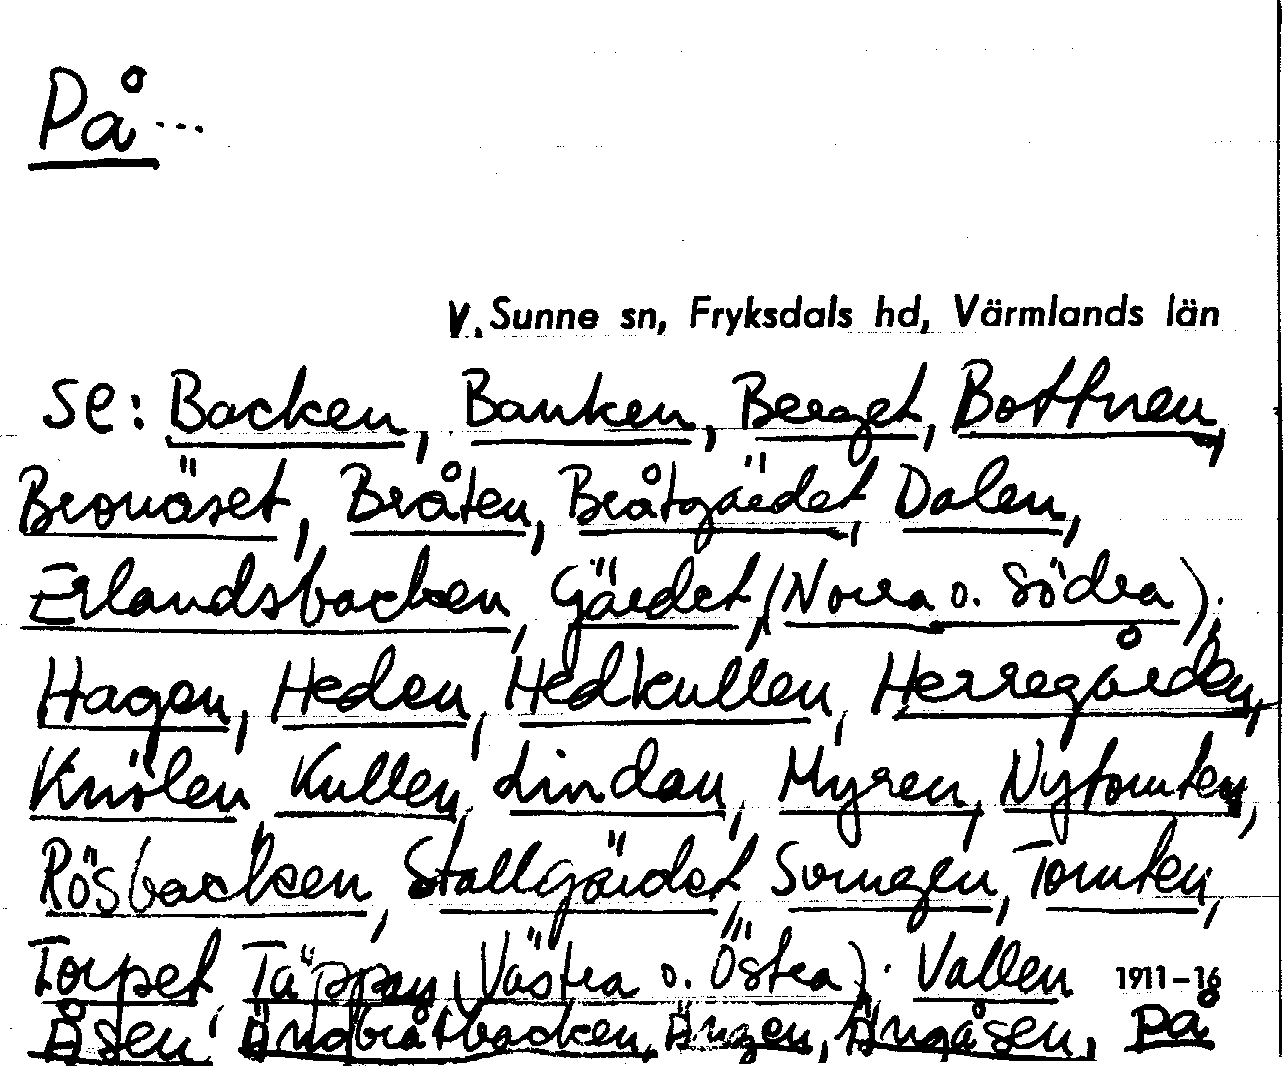 På...
V. Sunne sn, Fryksdals hd, Värmlands län
se: Backen, Banken, Berget, Bottnen,
Bronäset, Bråten, Bråtgärdet, Dalen,
Erlandsbacken, Gärdet, (Norra o. Södra),
Hagen, Heden, Hedkullen, Herregården,
Knölen, Kullen, Lindan, Myren, Nytomten,
Rösbacken, Stallgärdet, Svingen, Tomten,
Torpet, Täppan, (Västra o. Östra), Vallen 1911–16
Åsen, Ändbråtbacken, Ängen, Ängåsen, På